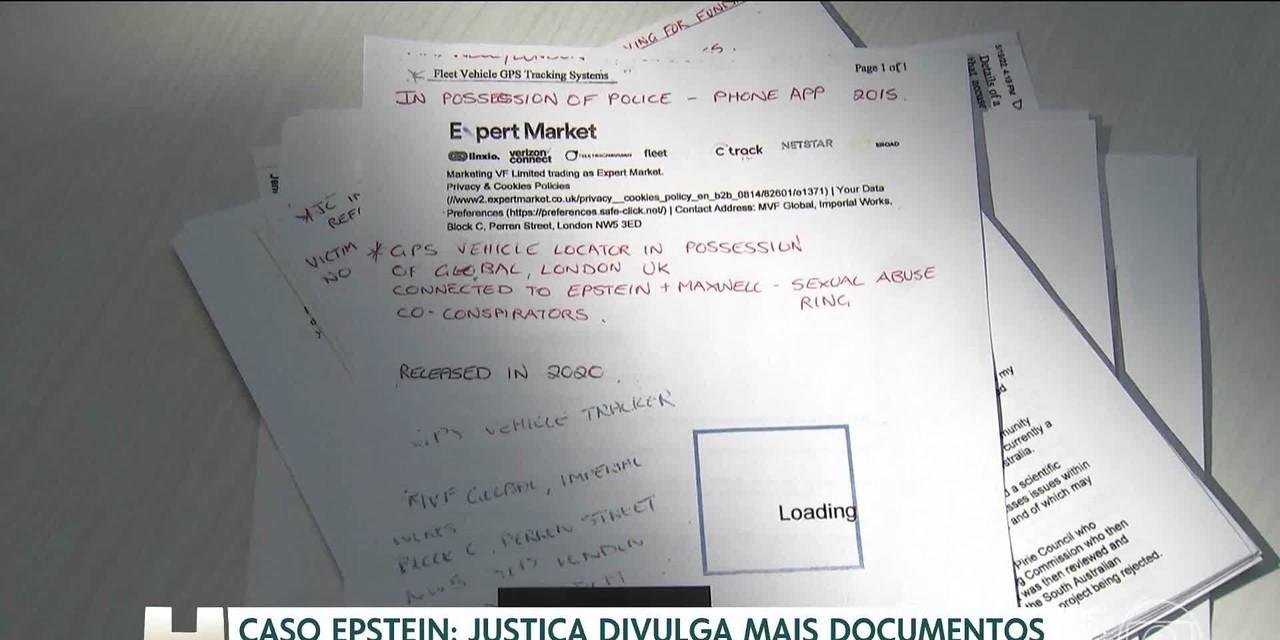 VING FOR FUN
Fleet Vehicle GPS Tracking Systems
Page 1 of 1
IN POSSESSION OF POLICE - PHONE APP 2015.
Expert Market
linxio. verizon connect fleet c track NETSTAR
Marketing VF Limited trading as Expert Market.
Privacy & Cookies Policies
(//www2.expertmarket.co.uk/privacy__cookies_policy_en_b2b_0814/82601/e1371) | Your Data
Preferences (https://preferences.safe-click.net/) | Contact Address: MVF Global, Imperial Works,
Block C, Perren Street, London NW5 3ED
* GPS VEHICLE LOCATOR IN POSSESSION
OF GLOBAL, LONDON UK
CONNECTED TO EPSTEIN + MAXWELL - SEXUAL ABUSE
RING
CO-CONSPIRATORS.
RELEASED IN 2020.
GPS VEHICLE TRACKER
MVF GLOBAL, IMPERIAL
WORKS
BLOCK C, PERREN STREET
LONDON
Loading
*JC in
REF
VICTIM
NO
Details of a
that accuse
my
munity
currently a
stralia.
a scientific
sses issues within
and of which may
Pirie Council who
g Commission who then
was then reviewed and
the South Australian
project being rejected.
CASO EPSTEIN: JUSTIÇA DIVULGA MAIS DOCUMENTOS